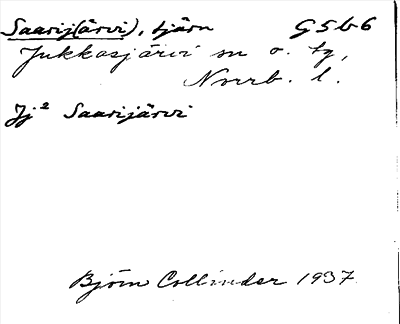 Saarij(ärvi), tjärn G5b6
Jukkasjärvi sn o. tg,
Norrb. l.
Jj² Saarijärvi
Björn Collinder 1937